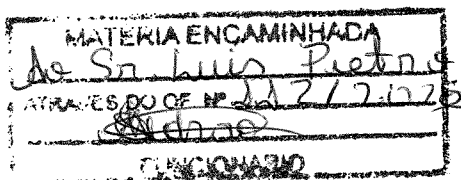 MATERIA ENCAMINHADA
Ao Sr Luis Pietro
ATRAVES DO OF. Nº
FUNCIONARIO